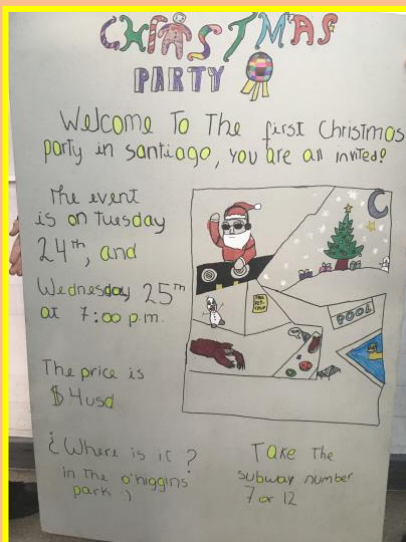 CHRISTMAS
PARTY
Welcome To The first Christmas
party in santiago, you are all invited!
The event
is on tuesday
24th, and
Wednesday 25th
at 7:00 p.m.
POOL
The price is
$4usd
¿Where is it?
in The o'higgins
park :)
Take the
subway number
7 or 12